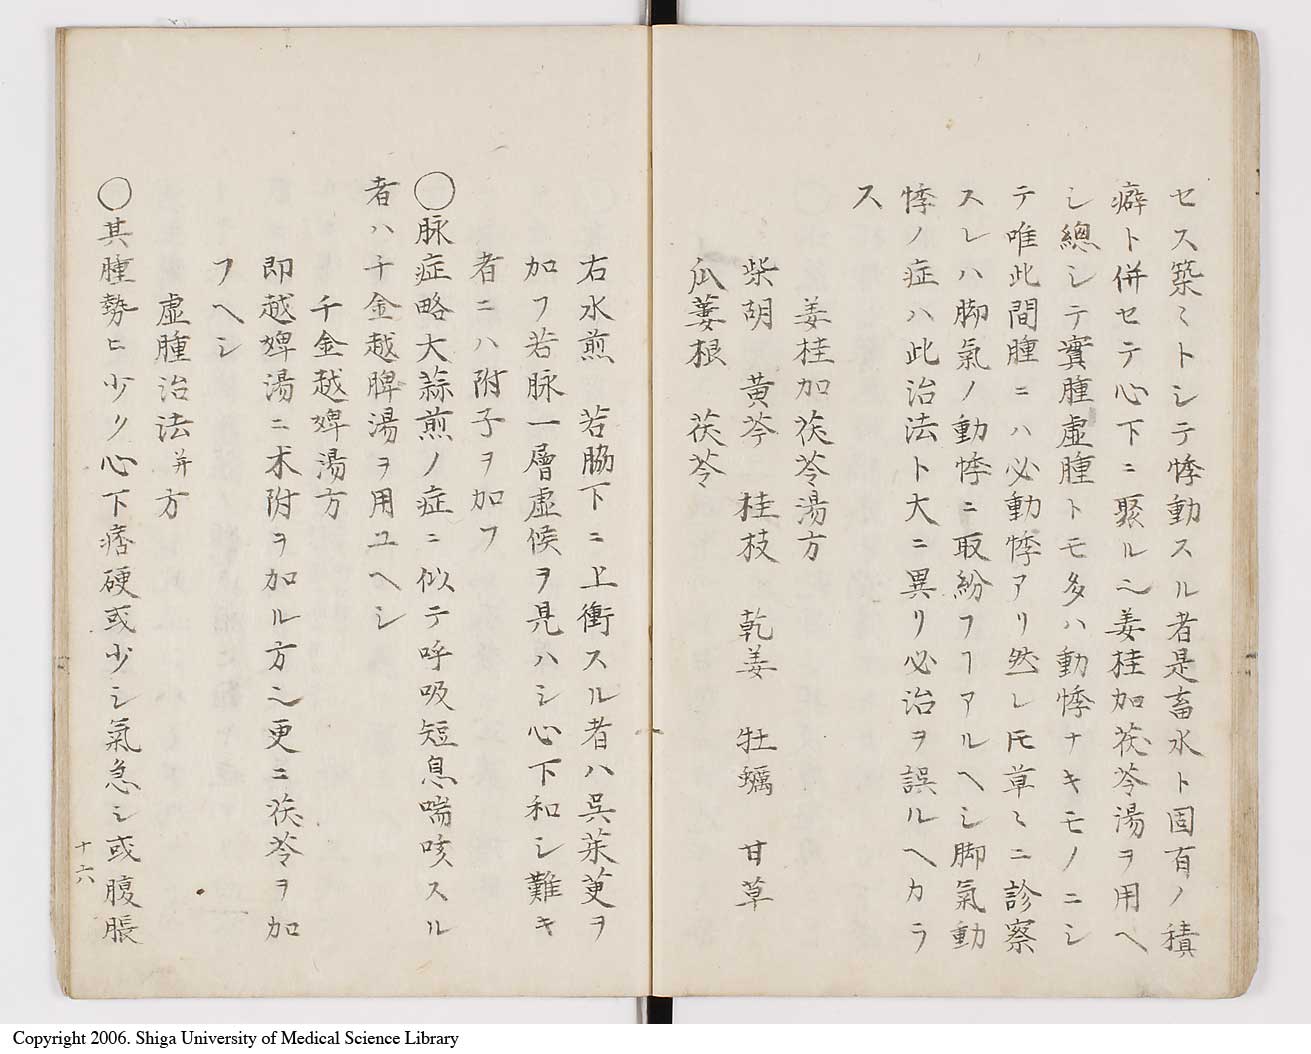 セス築〻トシテ悸動スル者是畜水ト固有ノ積
癖ト併セテ心下ニ聚ル也姜桂加茯苓湯ヲ用ヘ
シ總シテ實腫虚腫トモ多ハ動悸ナキモノニシ
テ唯此間腫ニハ必動悸アリ然レ𪜈草〻ニ診察
スレハ脚氣ノ動悸ニ取紛フヿアルヘシ脚氣動
悸ノ症ハ此治法ト大ニ異リ必治ヲ誤ルヘカラ
ス
姜桂加茯苓湯方
柴胡 黄芩 桂枝 乾姜 牡蠣 甘草
瓜蔞根 茯苓
右水煎 若脇下ニ上衝スル者ハ呉茱萸ヲ
加フ若脉一層虚候ヲ見ハシ心下和シ難キ
者ニハ附子ヲ加フ
〇脉症略大蒜煎ノ症ニ似テ呼吸短息喘咳スル
者ハ千金越脾湯ヲ用ユヘシ
千金越婢湯方
即越婢湯ニ朮附ヲ加ル方也更ニ茯苓ヲ加
フヘシ
虚腫治法并方
〇其腫勢ヒ少ク心下痞硬或少シ氣急シ或腹脹
十六
Copyright 2006. Shiga University of Medical Science Library